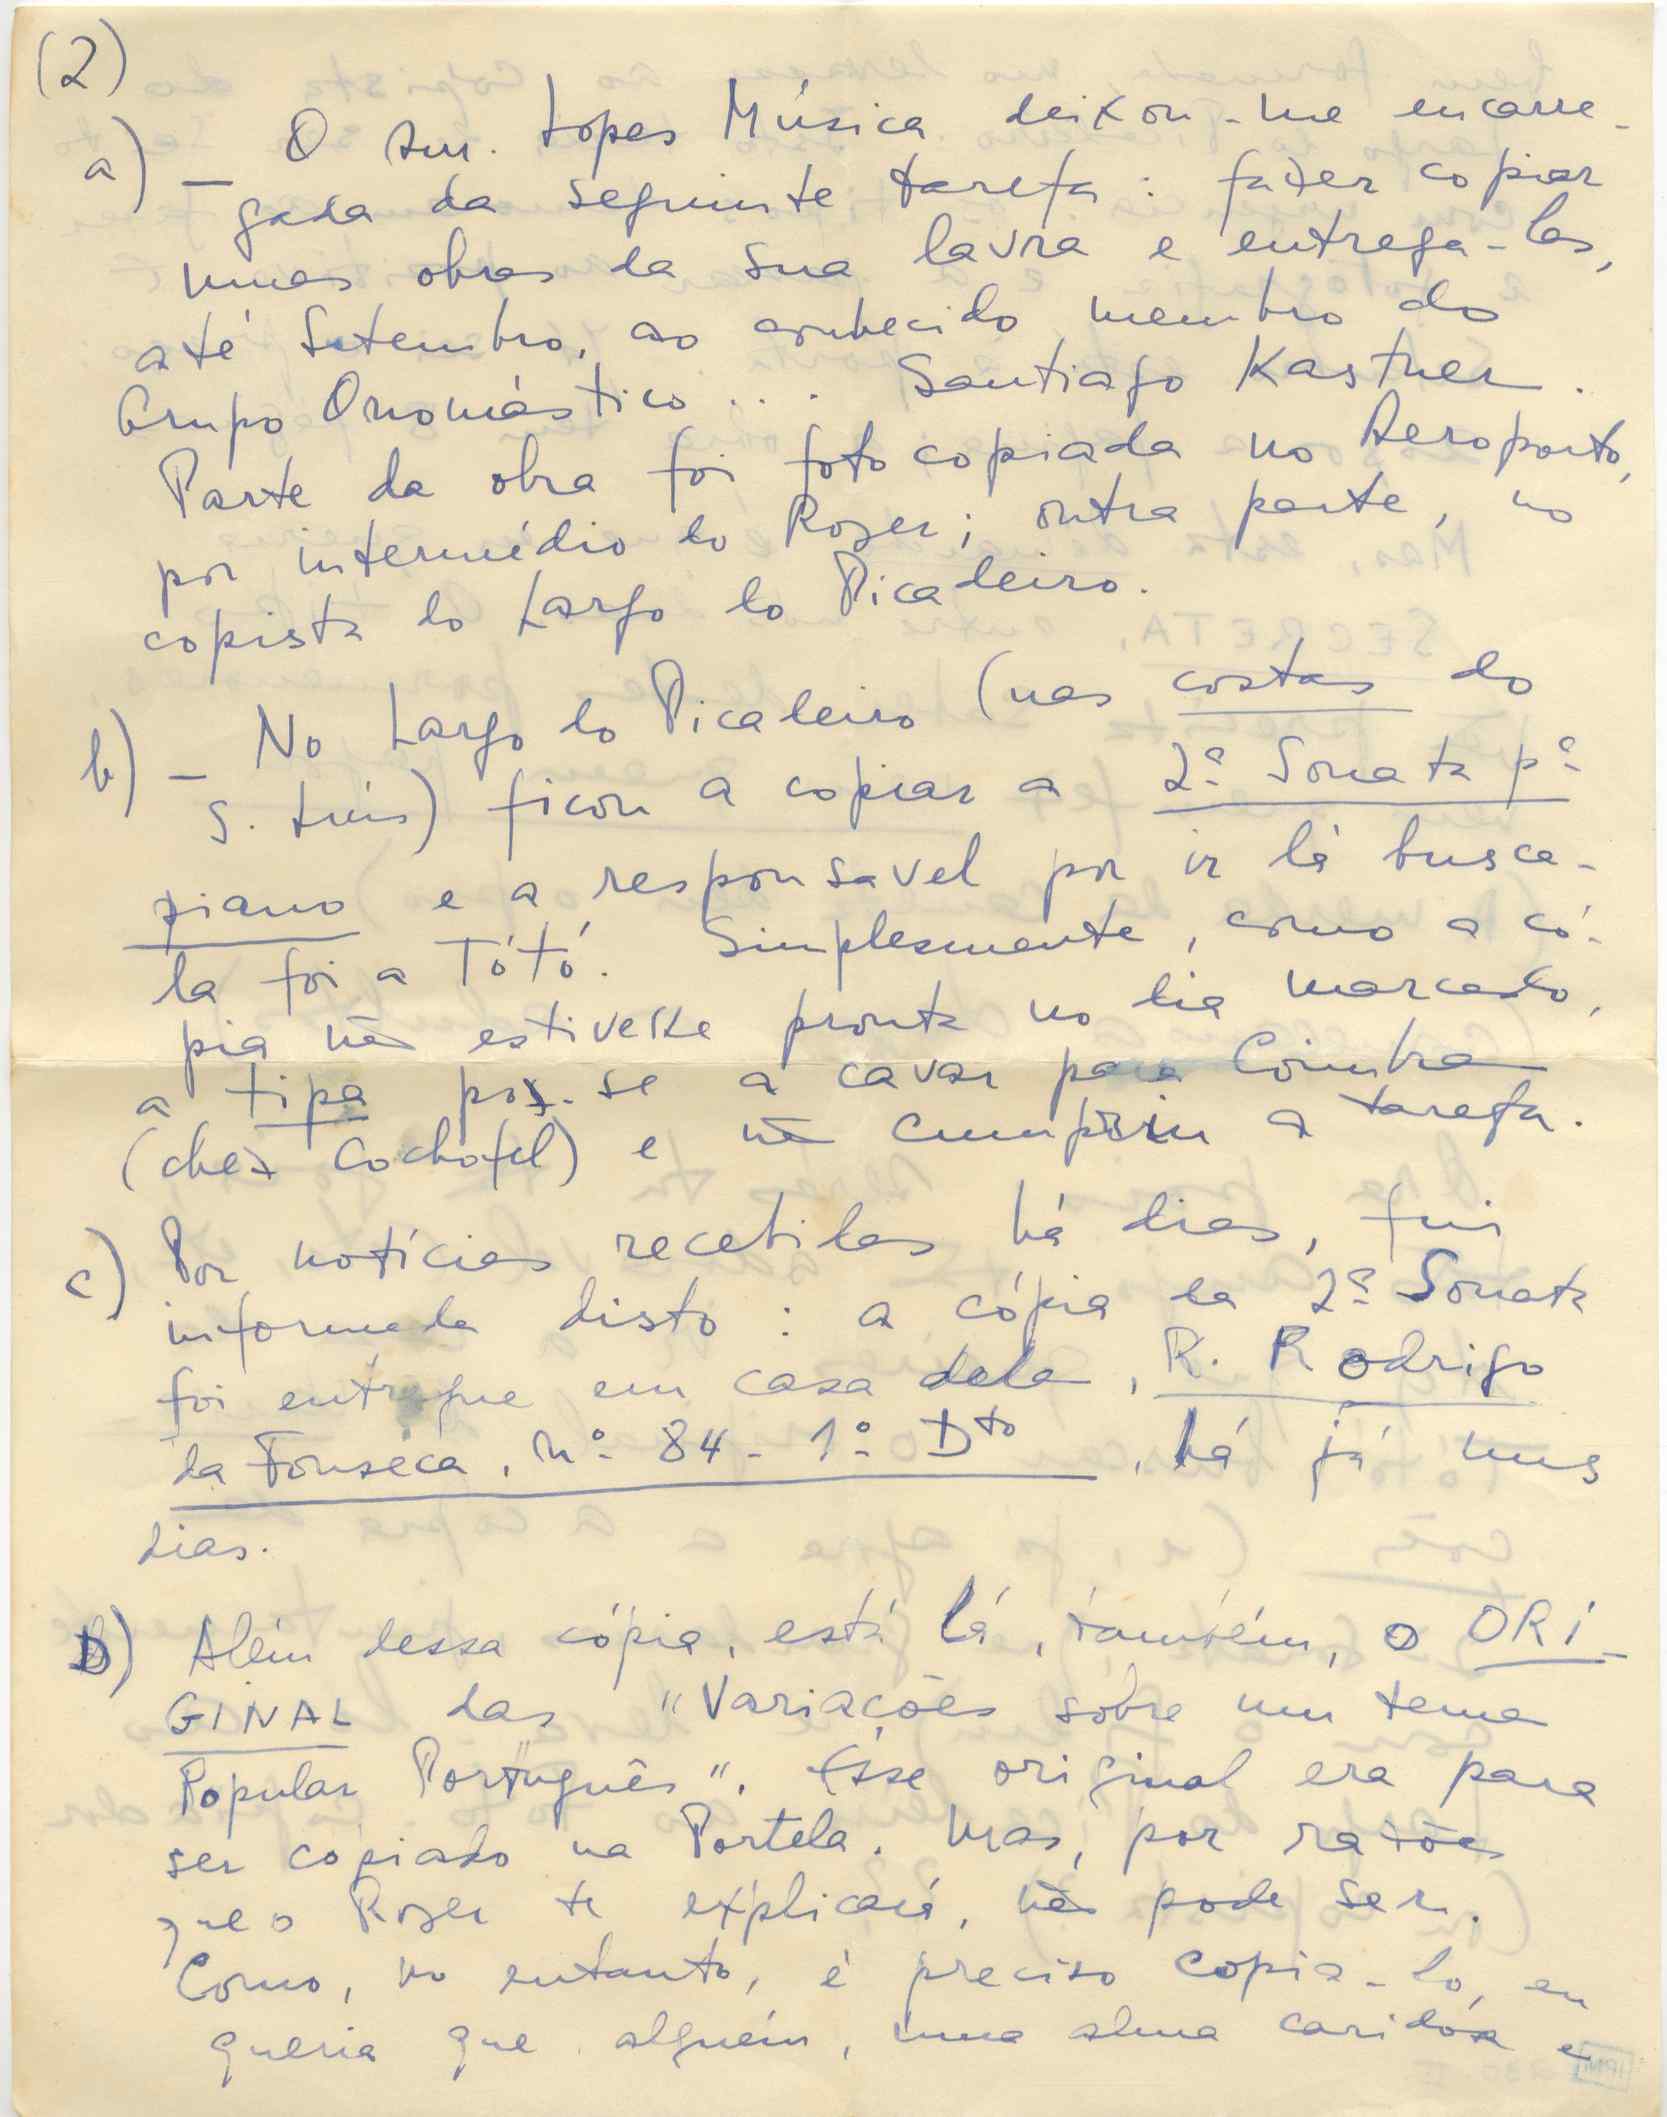 (2)
a) – O Snr. Lopes Música deixou-me encarre-
gada da seguinte tarefa: fazer copiar
umas obras da sua lavra e entrega-las,
até Setembro, ao conhecido membro do
Grupo Onomástico... Santiago Kastner.
Parte da obra foi fotocopiada no Aeroporto,
por intermédio do Roger; outra parte, no
copista do Largo do Picadeiro.
b) – No Largo do Picadeiro (nas costas do
S. Luís) ficou a copiar a 2ª Sonata pª
piano e a responsavel por ir lá busca-
la foi a Tótó. Simplesmente, como a có-
pia nã estivesse pronta no dia marcado,
a tipa pos-se a cavar para Coimbra
(chez Cochofel) e nã cumpriu a tarefa.
c) Por notícias recebidas há dias, fui
informada disto: a cópia da 2ª Sonata
foi entregue em casa dela, R. Rodrigo
da Fonseca, nº 84 - 1º Dto, há já uns
dias.
D) Além dessa cópia, está lá, também, o ORI-
GINAL das "Variações sôbre um tema
Popular Português". Êsse original era para
ser copiado na Portela. Mas, por razões
que o Roger te explicará, nã pode ser.
Como, no entanto, é preciso copia-lo, eu
queria que alguém, uma alma caridosa e